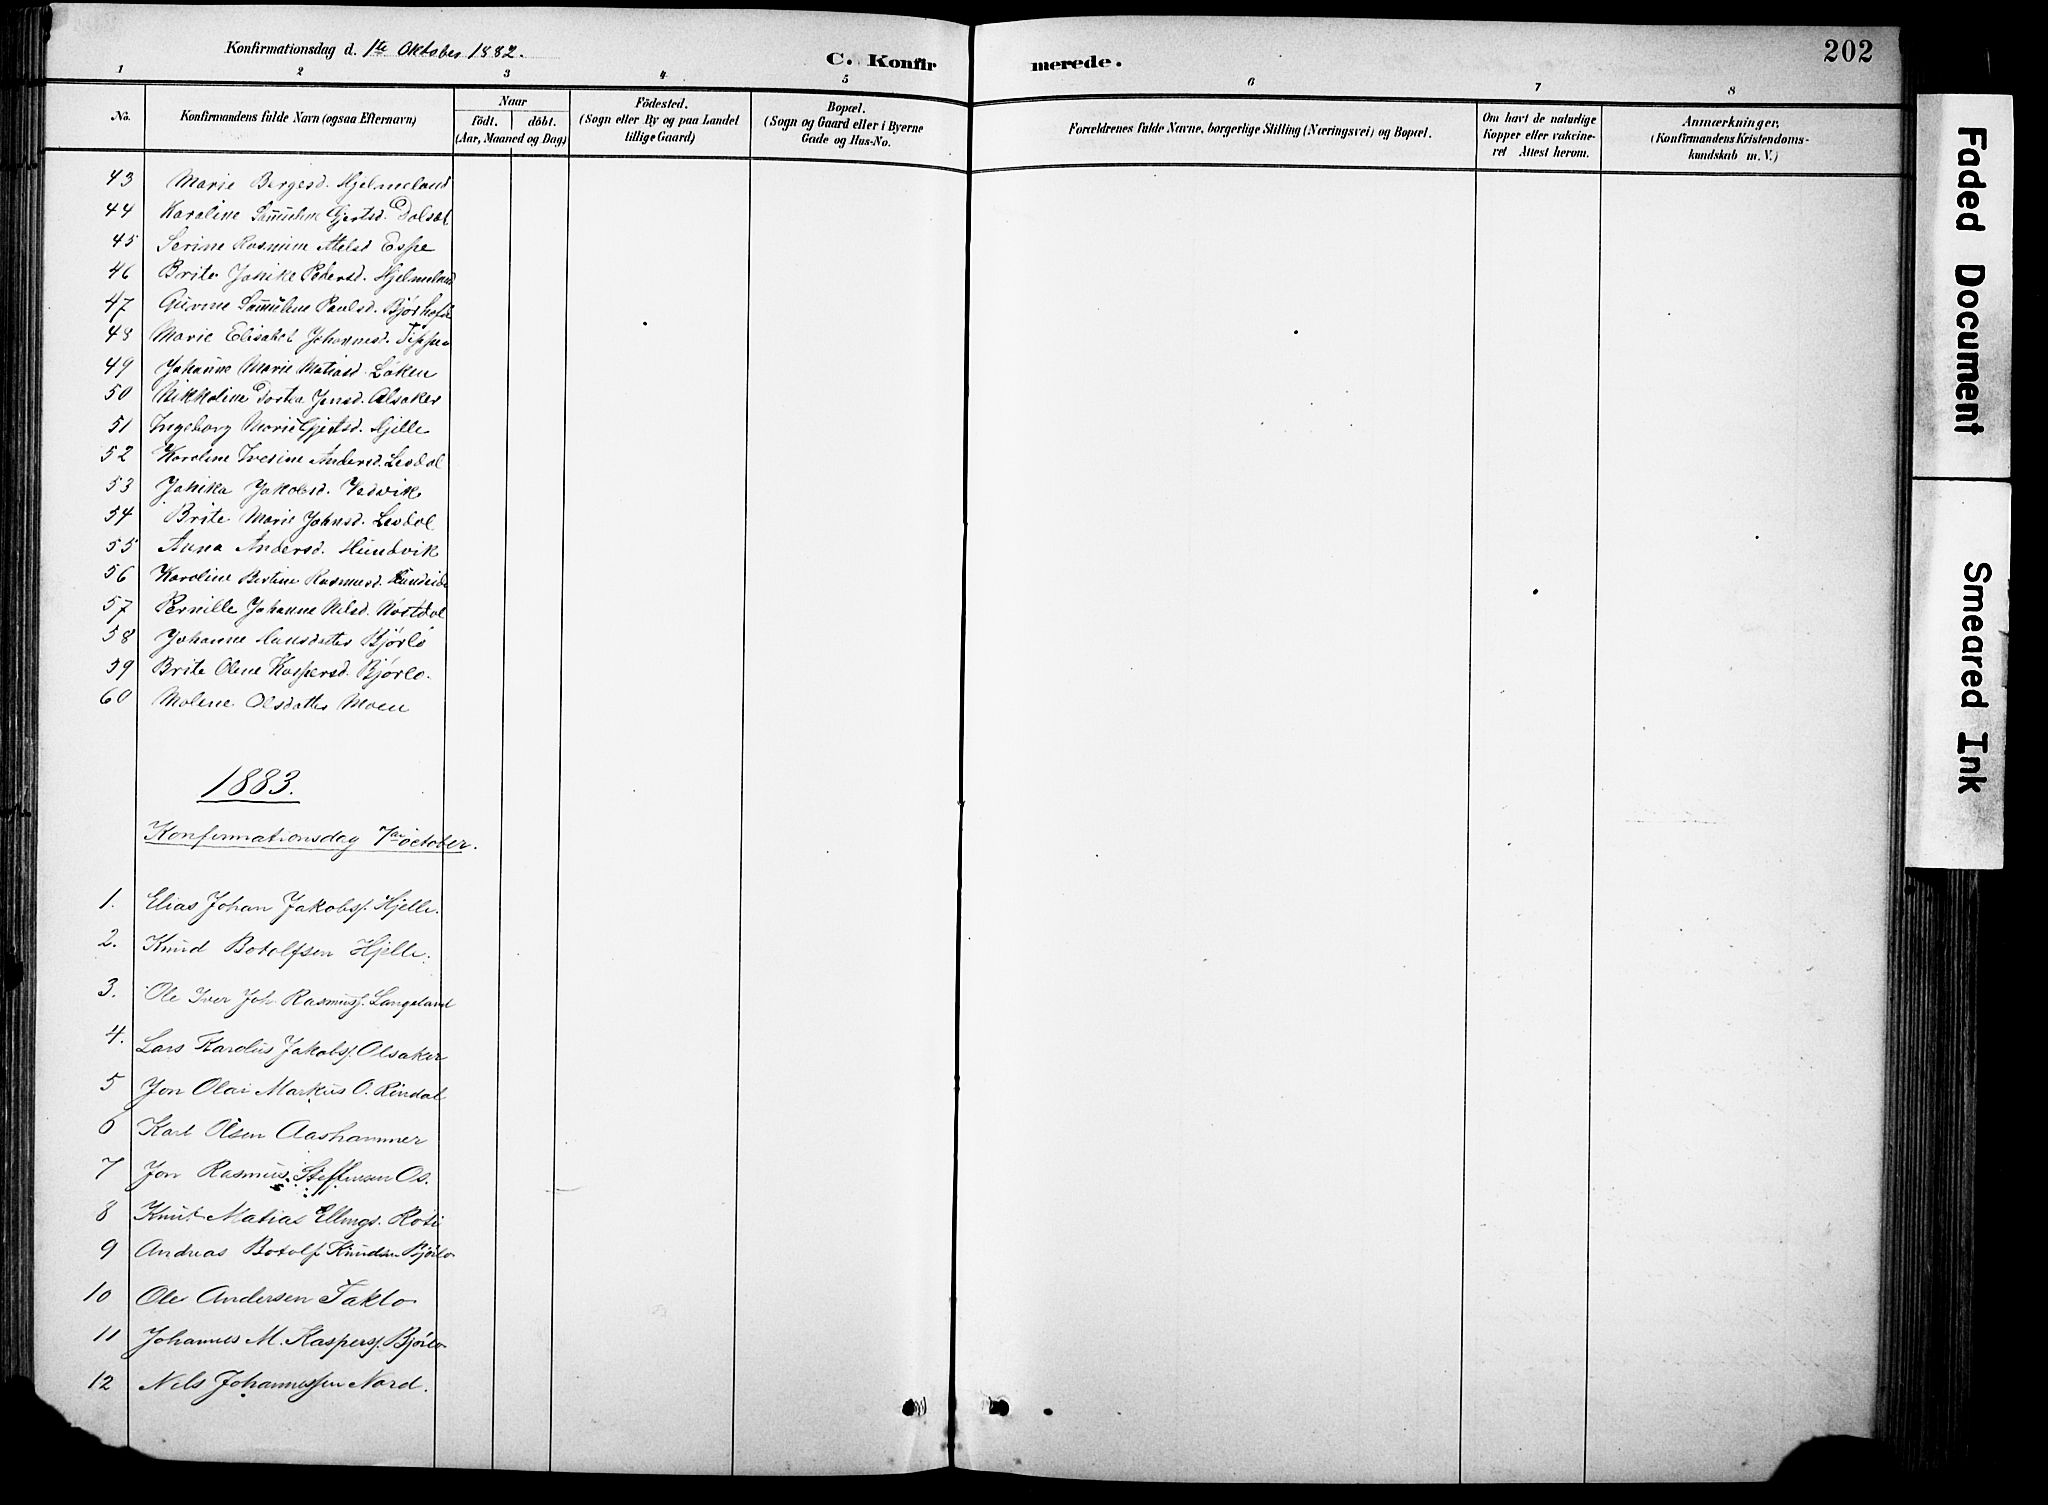 Konfirmationsdag d. 1ste Oktober 1882.
C. Konfirmerede.
202
1 2 3 4 5 6 7 8
No.
Konfirmandens fulde Navn (ogsaa Efternavn)
Naar
födt. döbt.
(Aar, Maaned og Dag)
Födested.
(Sogn eller By og paa Landet
tillige Gaard)
Bopæl.
(Sogn og Gaard eller i Byerne
Gade og Hus-No.
Forældrenes fulde Navne, borgerlige Stilling (Næringsvei) og Bopæl.
Om havt de naturlige
Kopper eller vakcine-
ret Attest herom.
Anmærkninger,
(Konfirmandens Kristendoms-
kundskab m. V.)
43 Marie Bergesd. Hjelmeland
44 Karoline Samueline Gjertsd. Dalsæt
45 Serine Rasmine Atelsd Espe
46 Brite Jahike Pedersd. Hjelmeland
47 Samuline Paulsd.
48 Marie Elisabet Johannesd.
49 Johanne Marie Matiasd. Løken
50 Nikkoline Dortea Jensd. Alsaker
51 Ingeborg Marie Gjertsd. Hjelle
52 Karoline Iversine Andersd. Lesdal
53 Jahika Jakobsd. Vedvik
54 Brite Marie Johnsd. Lesdal
55 Anna Andersd. Hundvik
56 Karoline Bertine Rasmusd.
57 Pernille Johanne Nilsd. Nøstdal
58 Johanne Hansdatter Bjørlo
59 Brite Oline Kaspersd. Bjørlo.
60 Malene Olsdatter Moen
1883.
Konfirmationsdag 7de october.
1. Elias Johan Jakobs. Hjelle.
2. Knud Botolfsen Hjelle.
3. Ole Iver Joh. Rasmuss. Langeland
4. Lars Karolus Jakobs. Olsaker
5 Jon Olai Markus O. Rindal
6 Karl Olsen Aashammer
7 Jon Rasmus Steffensen Os.
8 Knut Matias Ellings. Roti
9 Andreas Botolf Knudsen Bjørlo
10 Ole Andersen Taklo
11 Johannes M. Kaspers. Bjørlo
12 Nils Johannessen Nord.
Faded Document
Smeared Ink